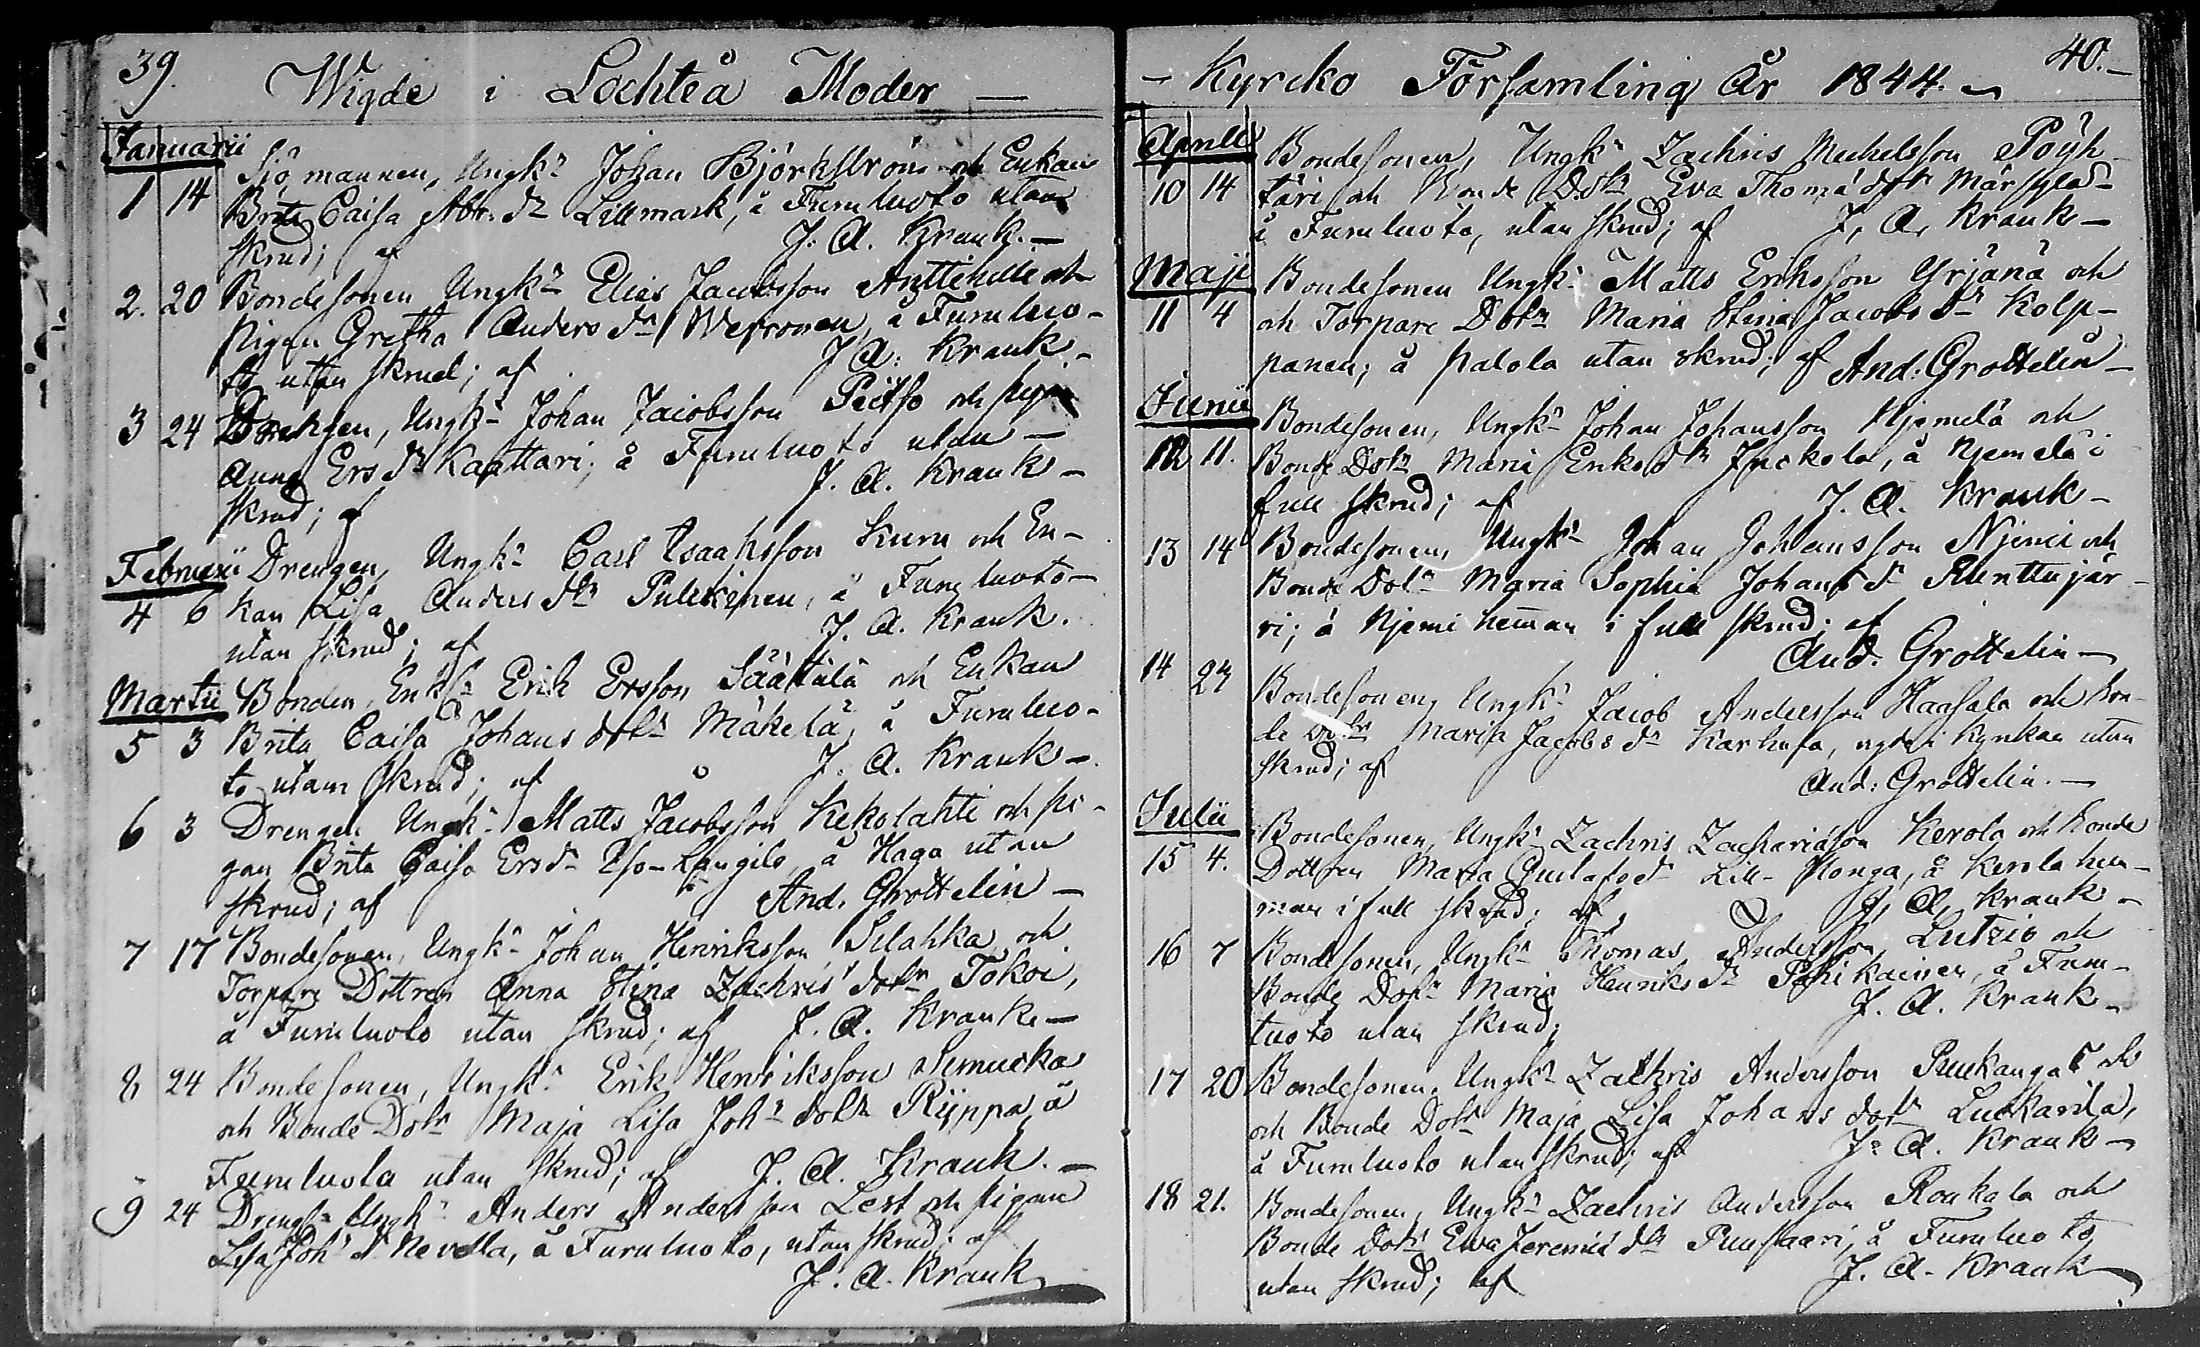 39.
Wigde i Lochteå Moder —
Januarii
Sjömannen, Ungk: Johan Björkström och Enkan
1 14 Brita Caisa Abr: dr Lillmark, å Furuluoto utan
skrud; af J. A. Krank. —
2. 20 Bondesonen Ungkn Elias Jacobsson Anttihille och
Pigan Gretha Anders dr Wessonen, å Furuluo-
to utan skrud; af J. A. Krank. -
3 24 Drengen, Ungk: Johan Jacobsson Peitso och pigan
Anna Ers dr Kaattari; å Furuluoto utan —
skrud; af J. A. Krank —
Februarii Drengen, Ungk: Carl Isaaksson Kuru och En-
4 6 kan Lisa Anders dr Pulkkinen, å Furuluoto —
utan skrud; af J. A. Krank.
Martii Bonden, Enkl: Erik Ersson Säätälä och Enkan
5 3 Brita Caisa Johans dotr Mäkelä, å Furuluo-
to utan skrud; af J. A. Krank —
6 3 Drengen Ungk: Matts Jacobsson Kekolahti och pi-
gan Brita Caisa Ers dr Iso-Kangila, å Haga utan
skrud; af And. Grottelin —
7 17 Bondesonen, Ungk: Johan Henriksson Silahka och
Torpare Dottren Anna Stina Zachris dotr Tokoi,
å Furuluoto utan skrud; af J. A. Krank —
8 24 Bondesonen, Ungk: Erik Henriksson Simucka
och Bonde Dotr Maja Lisa Johs dotr Riippa å
Furuluoto utan skrud; af J. A. Krank. —
9 24 Drengen Ungk: Anders Andersson Lest och pigan
Lisa Johs dr Nevala, å Furuluoto, utan skrud; af
J. A. Krank
— Kyrcko Församling År 1844. —
40. —
Aprill Bondesonen, Ungk: Zachris Michelsson Pöyh-
10 14 täri och Bonde Dotr Eva Thomæ dotr Märsylä
å Furuluoto, utan skrud; af J. A. Krank —
Maji Bondesonen Ungk: Matts Eriksson Yrjänä och
11 4 och Torpare Dotr Maria Stina Jacobs dr Kolp-
panen; å Palola utan skrud; af And: Grottelin —
Junii Bondesonen, Ungk: Johan Johansson Njemelä och
12 11. Bonde Dotr Maria Eriks dr Juckola, å Njemelä i
full skrud; af J. A. Krank —
13 14 Bondesonen, Ungk: Johan Johansson Njemi och
Bonde Dotr Maria Sophia Johans dr Runttujär-
vi; å Njemi hemman i full skrud; af
And: Grottelin —
14 27 Bondesonen, Ungk: Jacob Andersson Haasala och Bon-
de Dotr Maria Jacobs dr Karhula, vigde i Kyrkan utan
skrud; af And: Grottelin. —
Julii Bondesonen, Ungk: Zachris Zachariasson Kerola och Bonde
15 4. Dottren Maria Gustafs dr Lill-Honga, å Kerola hem-
man i full skrud; af J. A. Krank —
16 7 Bondesonen, Ungk: Thomas Andersson Lutzio och
Bonde Dotr Maria Henriks dr Pahikainen, å Furu-
luoto utan skrud; J. A. Krank —
17 20 Bondesonen, Ungk: Zachris Andersson Puukangas och
och Bonde Dotr Maja Lisa Johans dotr Luckarila,
å Furuluoto utan skrud; af J: A. Krank —
18 21. Bondesonen, Ungk: Zachris Andersson Roukala och
Bonde Dotr Eva Jeremiæ dr Puusaari, å Furuluoto,
utan skrud; af J. A. Krank